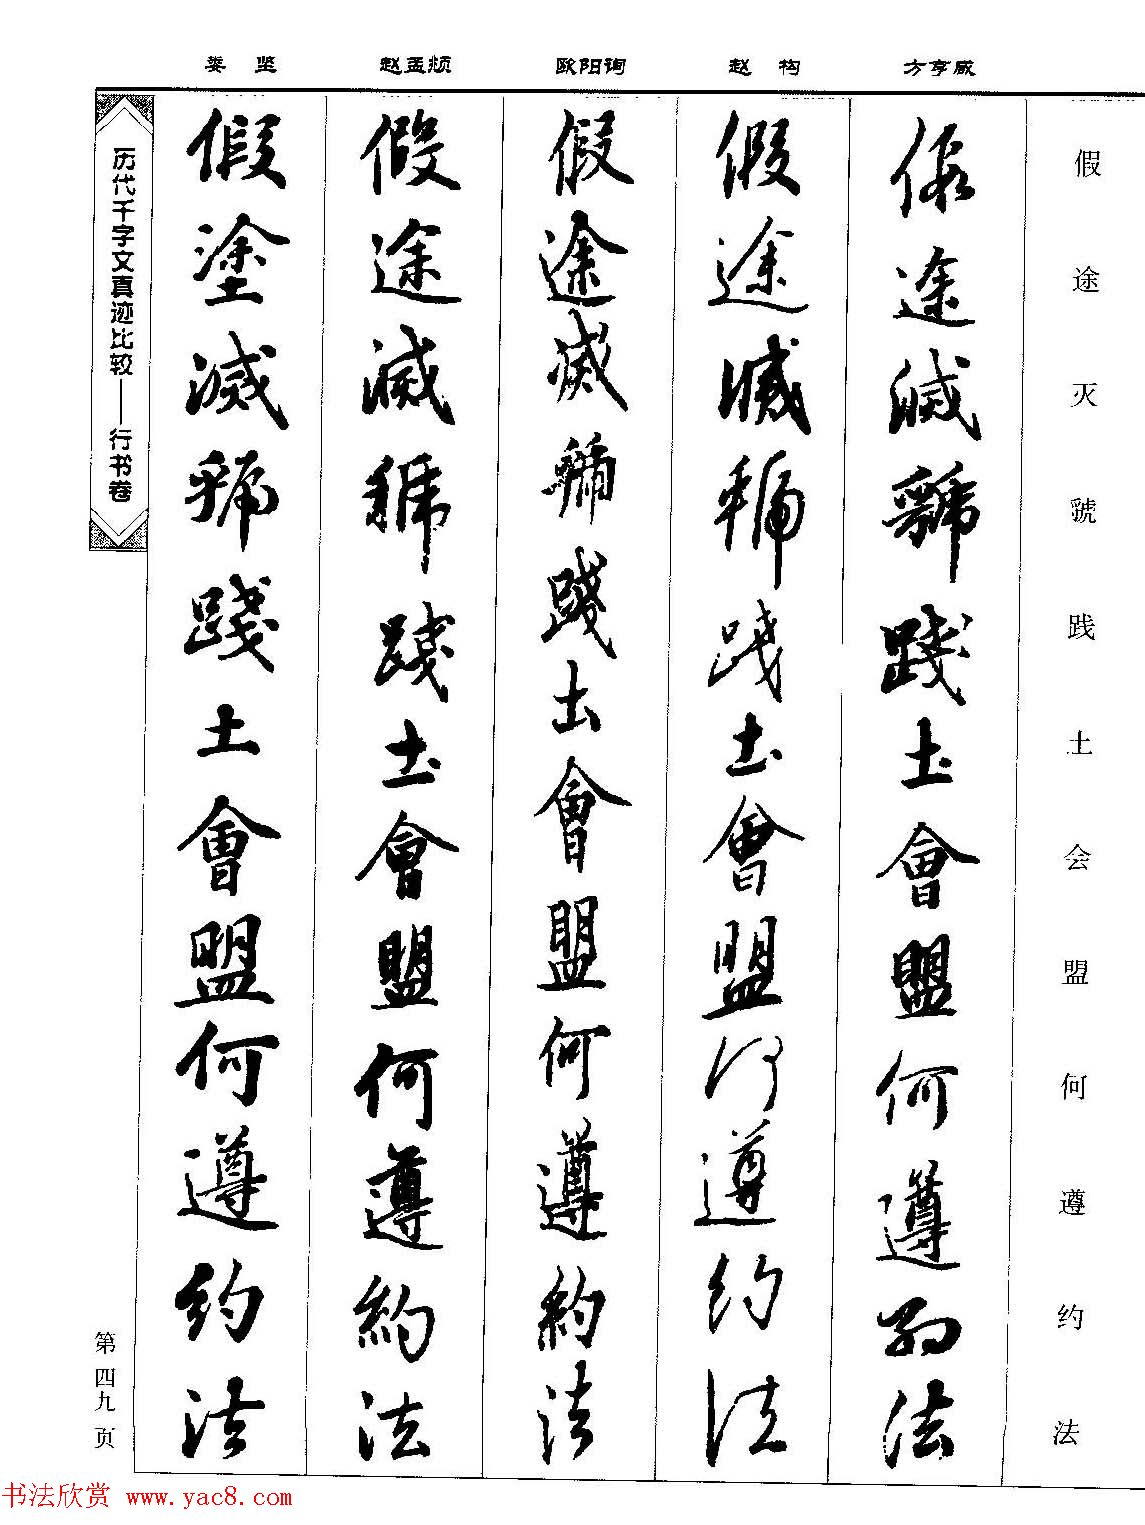 娄 坚 赵孟頫 欧阳询 赵 构 方亨咸
假途灭虢践土会盟何遵约法
假途滅虢踐土會盟何遵約法
假途滅虢踐土會盟何遵約法
假途滅虢踐土會盟何遵約法
假途滅虢踐土會盟何遵約法
假塗滅虢踐土會盟何遵約法
历代千字文真迹比较——行书卷
第四九页
书法欣赏 www.yac8.com